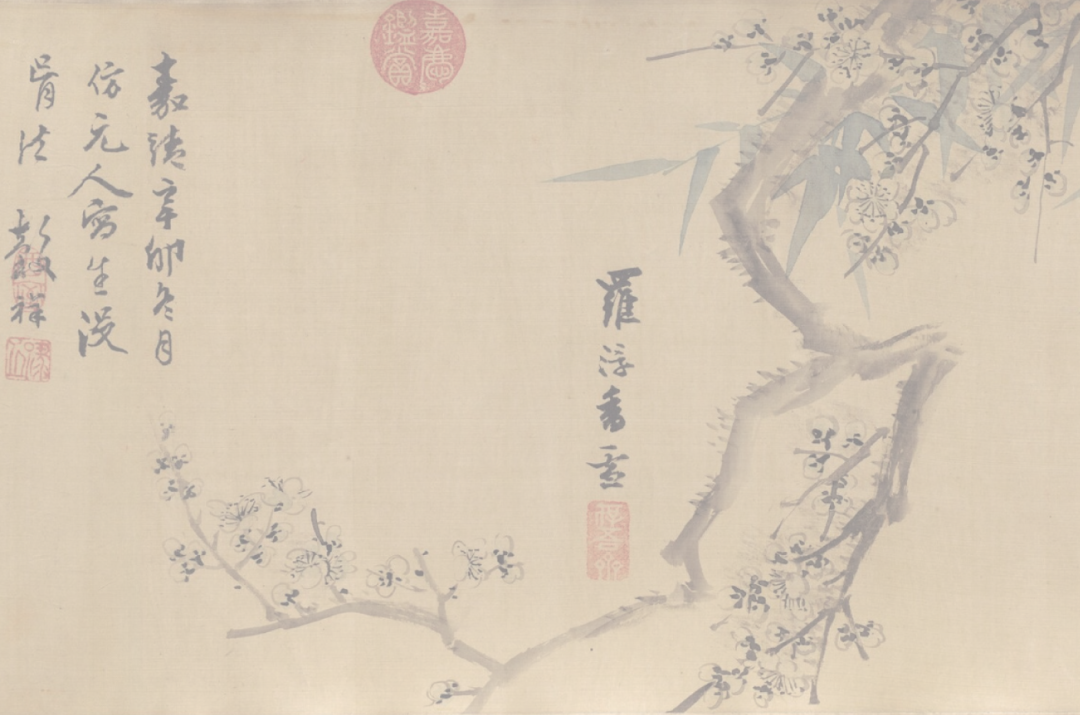 嘉慶鑑賞
羅浮香雪
嘉靖辛卯冬月
仿元人寫生沒
骨法 彭祥